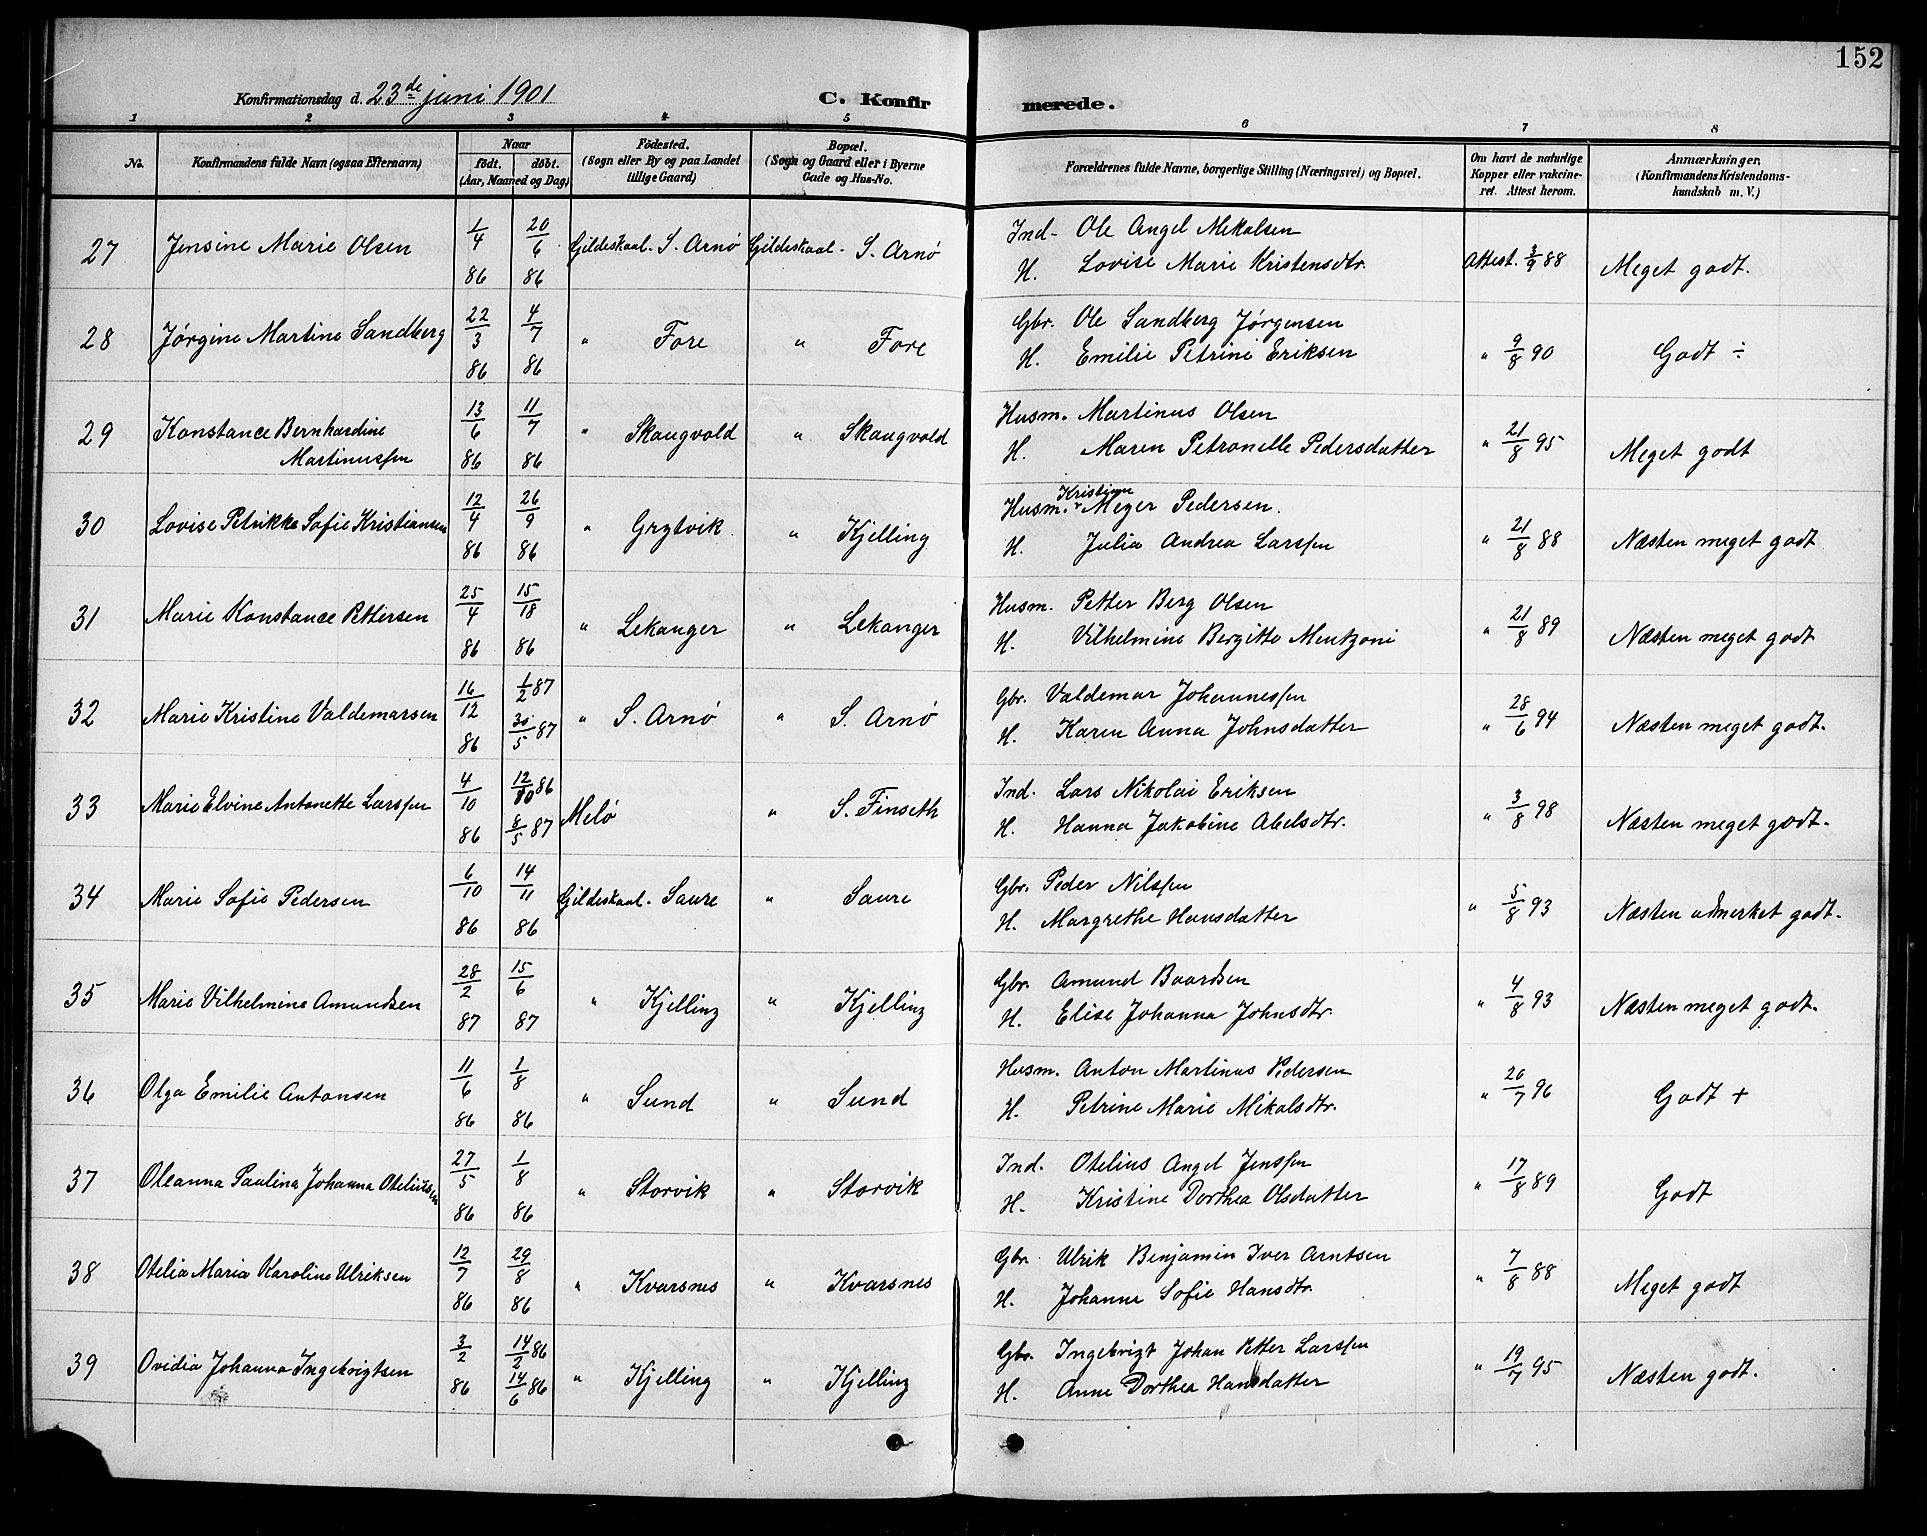 152
Konfirmationsdag d. 23de juni 1901 C. Konfirmerede.
1 2 3 4 5 6 7 8
No. Konfirmandens fulde Navn (ogsaa Efternavn) Naar födt. döbt. (Aar, Maaned og Dag) Födested. (Sogn eller By og paa Landet tillige Gaard) Bopæl. (Sogn og Gaard eller i Byerne Gade og Hus-No. Forældrenes fulde Navne, borgerlige Stilling (Næringsvei) og Bopæl. Om havt de naturlige Kopper eller vakcineret. Attest herom. Anmærkninger. (Konfirmandens Kristendomskundskab m. V.)
27 Jensine Marie Olsen 1/4 86 20/6 86 Gildeskaal. S. Arnø Gildeskaal. S. Arnø Ind. Ole Angel Mikalsen
H. Lovise Marie Kristensdtr. Attest. 3/9 88 Meget godt.
28 Jørgine Martine Sandberg 22/3 86 4/7 86 " Fore " Fore Gbr. Ole Sandberg Jørgensen
H. Emilie Petrine Eriksen " 9/8 90 Godt ÷
29 Konstance Bernhardine Martinussen 13/6 86 11/7 86 " Skaugvold " Skaugvold Husm. Martinus Olsen
H. Maren Petronelle Pedersdatter " 21/8 95 Meget godt
30 Lovise Petrikke Sofie Kristiansen 12/4 86 26/9 86 " Grytvik " Kjelling Husm. Kristian Meyer Pedersen.
H. Julia Andrea Larssen " 21/8 88 Næsten meget godt
31 Marie Konstance Pettersen 25/4 86 15/18 86 " Lekanger " Lekanger Husm. Petter Berg Olsen
H. Vilhelmine Bergitte Mentzoni " 21/8 89 Næsten meget godt
32 Marie Kristine Valdemarsen 16/12 86 1/2 87 30/5 87 " S. Arnø " S. Arnø Gbr. Valdemar Johannessen
H. Karen Anna Johnsdatter " 28/6 94 Næsten meget godt.
33 Marie Elvine Antonette Larssen 4/10 86 12/10 86 8/5 87 Melø " S. Finseth Ind. Lars Nikolai Eriksen
H. Hanna Jakobine Abelsdtr. " 3/8 98 Næsten meget godt.
34 Marie Sofie Pedersen 6/10 86 14/11 86 Gildeskaal. Saure " Saure Gbr. Peder Nilssen
H. Margrethe Hansdatter " 5/8 93 Næsten udmerket godt.
35 Marie Vilhelmine Amundsen 28/2 87 15/6 87 " Kjelling " Kjelling Gbr. Amund Baardsen
H. Elise Johanna Johnsdtr. " 4/8 93 Næsten meget godt.
36 Olga Emilie Antonsen 11/6 86 1/8 86 " Sund " Sund Husm. Anton Martinus Pedersen
H. Petrine Marie Mikalsdtr. " 26/7 96 Godt +
37 Oleanna Paulina Johanna Oteliussen 27/5 86 1/8 86 " Storvik " Storvik Ind. Otelius Angel Jenssen
H. Kristine Dorthea Olsdatter " 17/8 89 Godt
38 Otelia Maria Karoline Ulriksen 12/7 86 29/8 86 " Kvarsnes " Kvarsnes Gbr. Ulrik Benjamin Iver Arntsen
H. Johanna Sofie Hansdtr. " 7/8 88 Meget godt
39 Ovidia Johanna Ingebrigtsen 3/2 86 14/2 86 14/6 86 " Kjelling " Kjelling Gbr. Ingebrigt Johan Petter Larssen
H. Anne Dorthea Hansdatter " 19/7 95 Næsten godt.